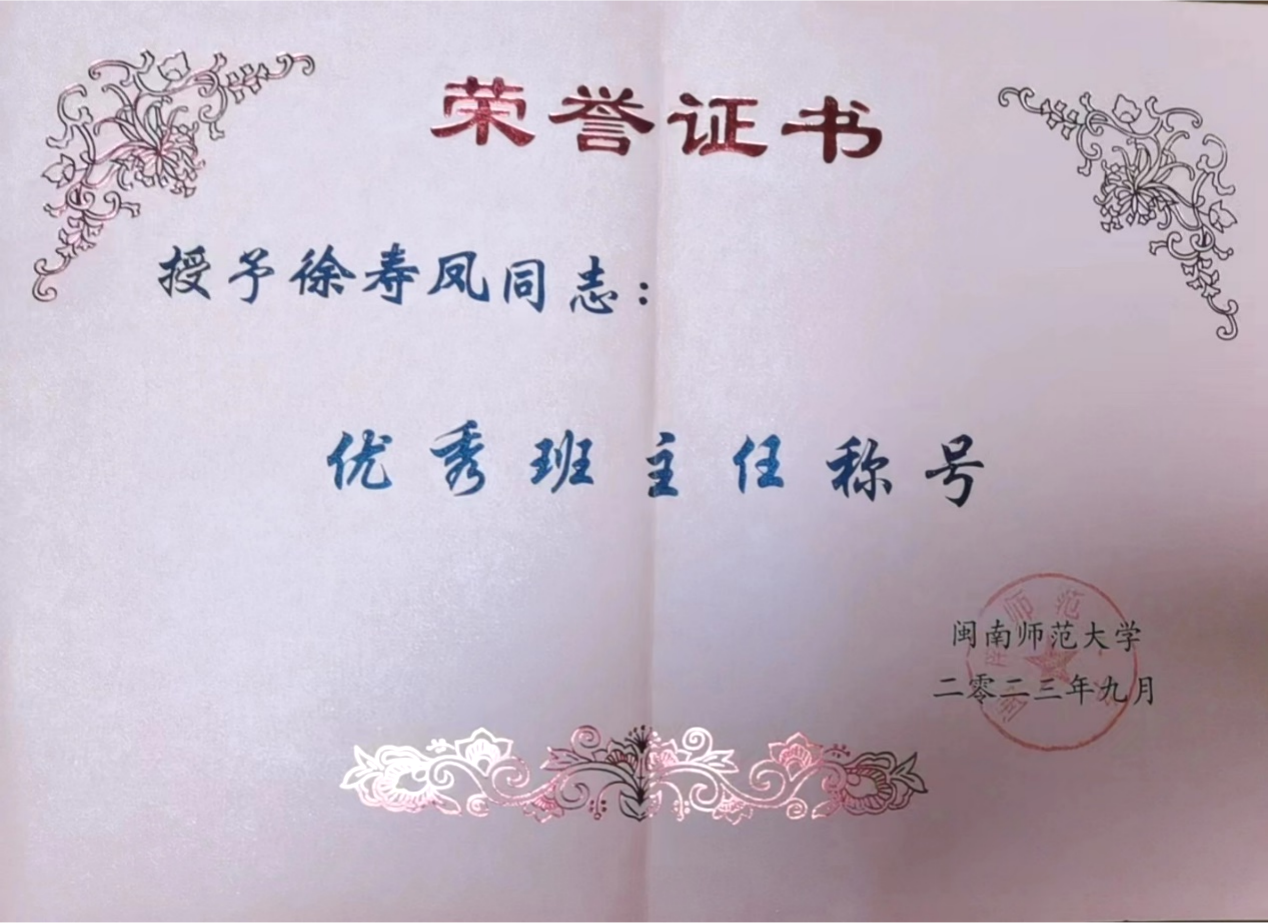 荣誉证书
授予徐寿凤同志：
优秀班主任称号
闽南师范大学
二零二三年九月